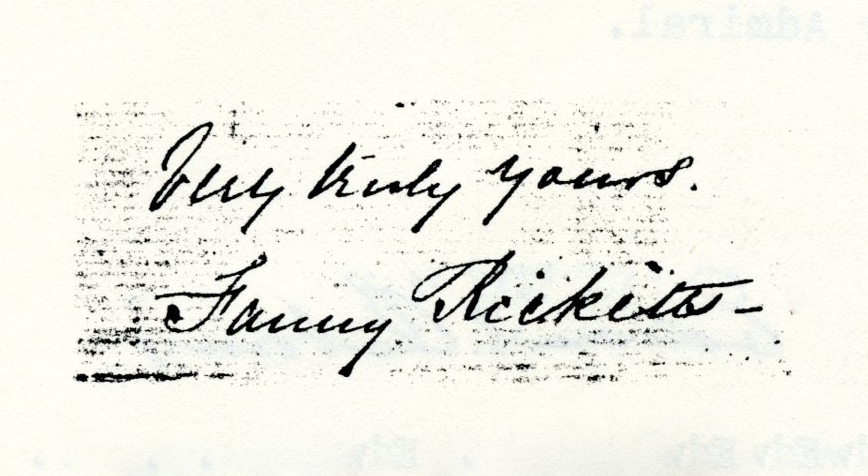 Very truly yours.
Fanny Ricketts -